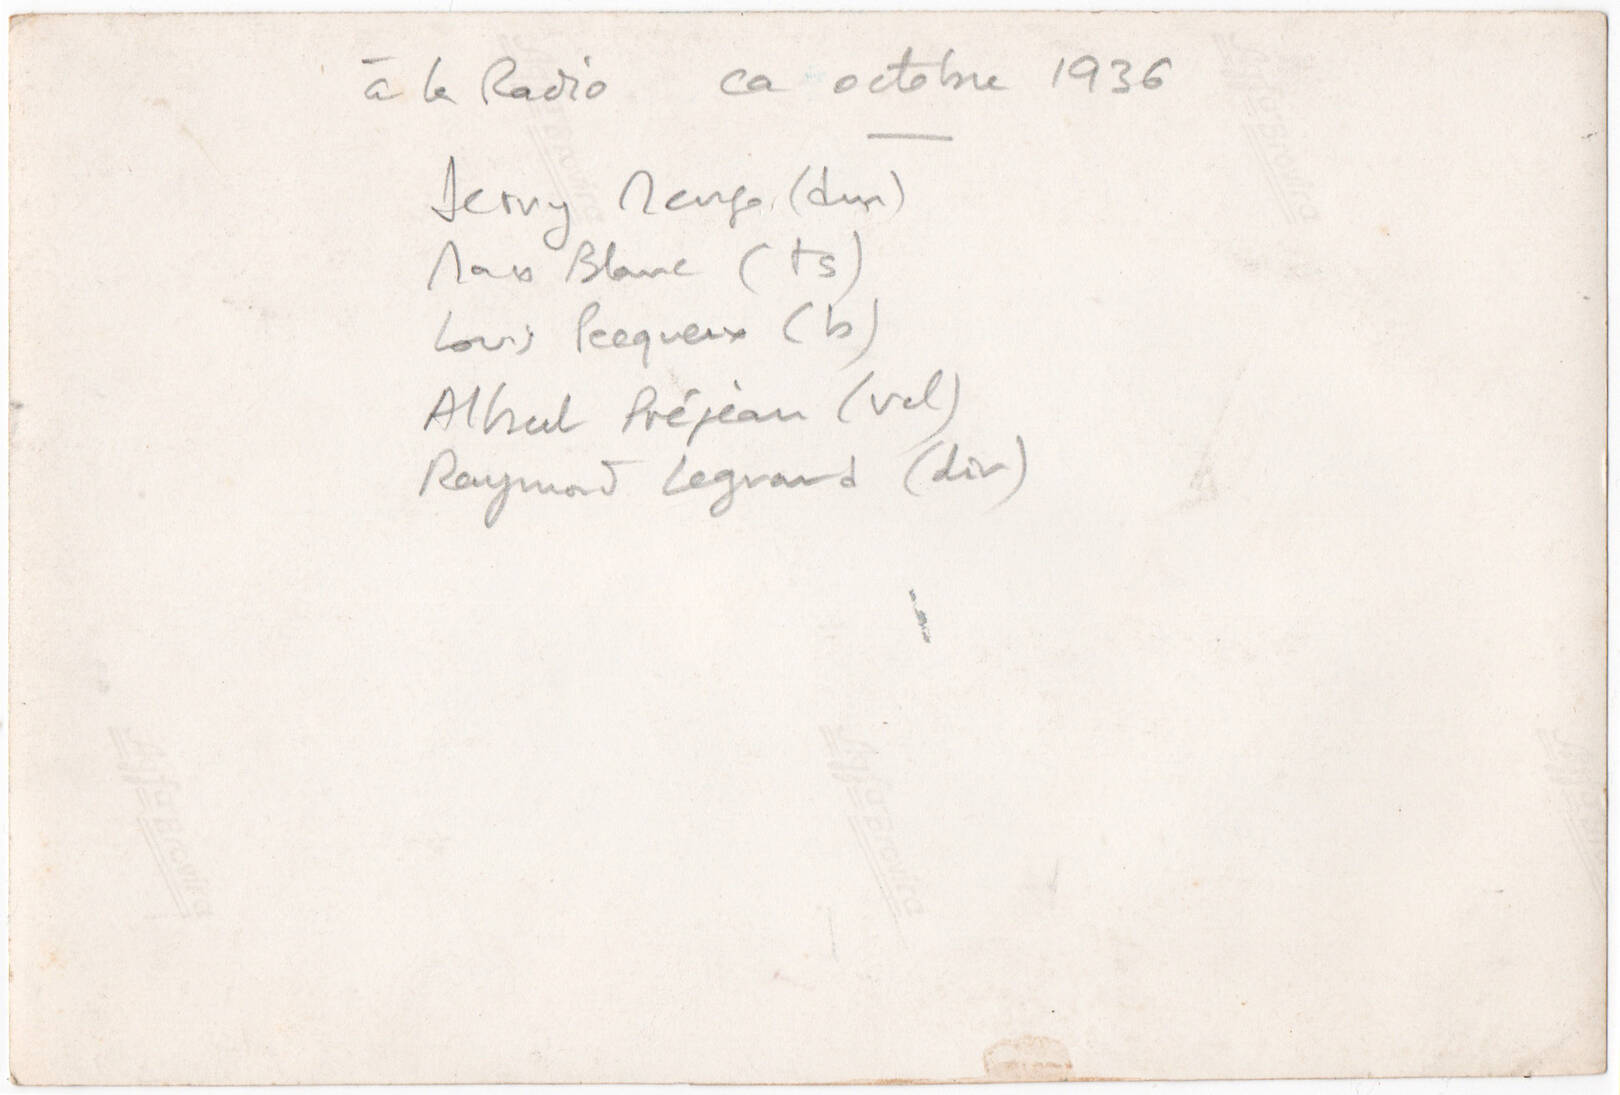 à la Radio ca octobre 1936
Jerry Mengo (dm)
Max Blanc (ts)
Louis Pecqueux (b)
Albert Préjean (vcl)
Raymond Legrand (dir)
Agfa Brovira
Agfa Brovira
Agfa Brovira
Agfa Brovira
Agfa Brovira